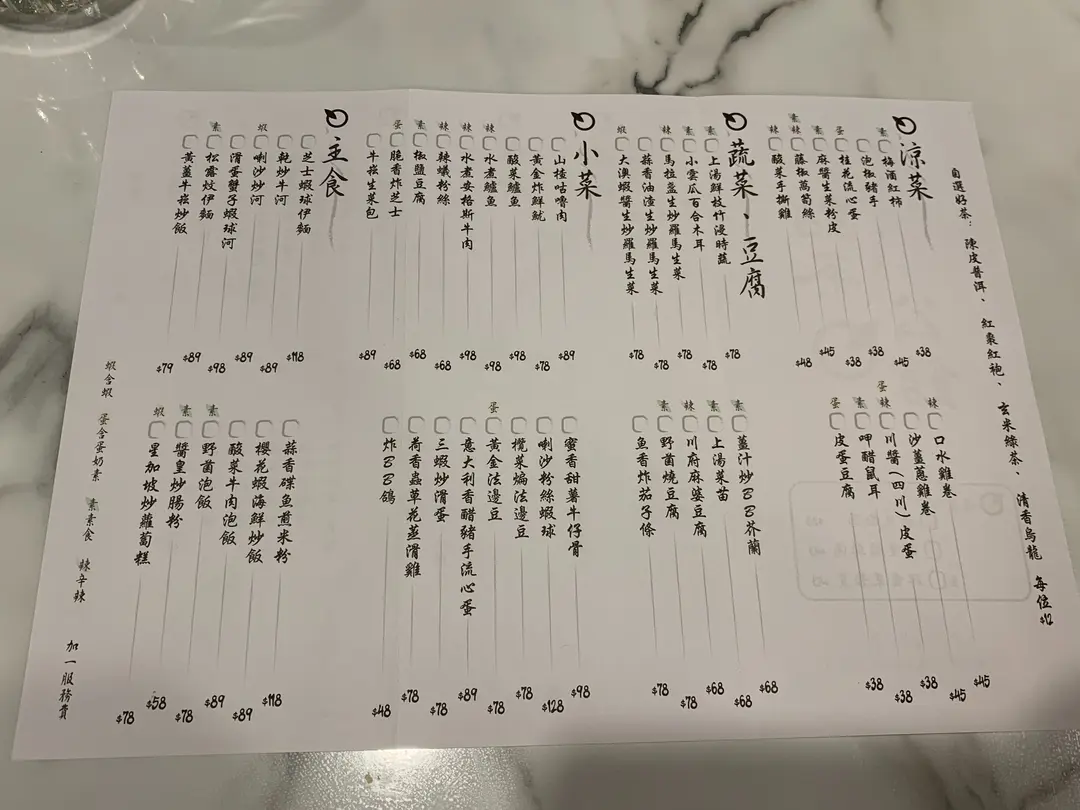 自選好茶： 陳皮普洱、 紅棗紅袍、 玄米綠茶、 清香烏龍 每位$12
涼菜
素 梅酒紅柿 $38
泡椒豬手 $45
蛋 桂花流心蛋 $38
素 麻醬生菜粉皮 $38
素辣 藤椒萵筍絲 $45
辣 酸菜手撕雞 $48
辣 口水雞卷 $45
沙薑蔥雞卷 $45
蛋辣 川醬(四川)皮蛋 $38
素 呷醋鼠耳 $38
蛋 皮蛋豆腐 $38
蔬菜、豆腐
素 上湯鮮枝竹浸時蔬 $78
素 小雲瓜百合木耳 $78
辣 馬拉盞生炒羅馬生菜 $78
蒜香油渣生炒羅馬生菜 $68
蝦 大澳蝦醬生炒羅馬生菜 $78
素 薑汁炒BB芥蘭 $68
素 上湯菜苗 $68
辣 川府麻婆豆腐 $68
素 野菌燒豆腐 $78
魚香炸茄子條 $78
小菜
山楂咕嚕肉 $89
黃金炸鮮魷 $78
酸菜鱸魚 $98
辣 水煮鱸魚 $98
辣 水煮安格斯牛肉 $98
辣 辣蟻粉絲 $68
素 椒鹽豆腐 $68
蛋 脆香炸芝士 $68
牛崧生菜包 $89
蜜香甜薯牛仔骨 $98
喇沙粉絲蝦球 $128
欖菜煸法邊豆 $78
蛋 黃金法邊豆 $78
意大利香醋豬手流心蛋 $89
三蝦炒滑蛋 $78
荷香蟲草花蒸滑雞 $78
炸BB鴿 $48
主食
芝士蝦球伊麵 $118
乾炒牛河 $89
蝦 喇沙炒河 $89
滑蛋蟹子蝦球河 $98
素 松露炆伊麵 $89
黃薑牛崧炒飯 $79
蒜香碟魚煎米粉 $118
櫻花蝦海鮮炒飯 $89
酸菜牛肉泡飯 $89
素 野菌泡飯 $78
素 醬皇炒腸粉 $58
蝦 星加坡炒蘿蔔糕 $78
蝦 含蝦 蛋 含蛋奶素 素 素食 辣 辛辣 加一服務費